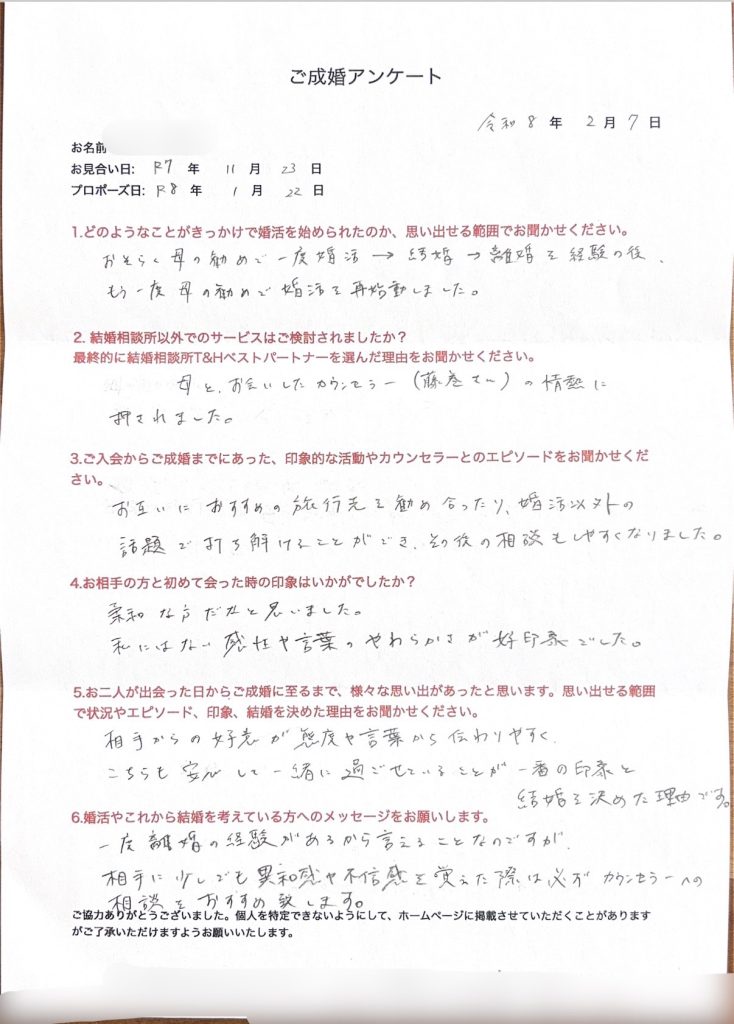 ご成婚アンケート
令和 8 年 2 月 7 日
お名前
お見合い日: R7 年 11 月 23 日
プロポーズ日: R8 年 1 月 22 日
1.どのようなことがきっかけで婚活を始められたのか、思い出せる範囲でお聞かせください。
おそらく母の勧めで一度婚活→結婚→離婚を経験の後、
もう一度母の勧めで婚活を再始動しました。
2. 結婚相談所以外でのサービスはご検討されましたか？
最終的に結婚相談所T&Hベストパートナーを選んだ理由をお聞かせください。
母と、お会いしたカウンセラー(藤巻さん)の情熱に
押されました。
3.ご入会からご成婚までにあった、印象的な活動やカウンセラーとのエピソードをお聞かせくだ
さい。
お互いにおすすめの旅行先を勧め合ったり、婚活以外の
話題で打ち解けることができ、その後の相談もしやすくなりました。
4.お相手の方と初めて会った時の印象はいかがでしたか？
柔和な方だなと思いました。
私にはない感性や言葉のやわらかさが好印象でした。
5.お二人が出会った日からご成婚に至るまで、様々な思い出があったと思います。思い出せる範囲
で状況やエピソード、印象、結婚を決めた理由をお聞かせください。
相手からの好意が態度や言葉から伝わりやすく、
こちらも安心して一緒に過ごせていることが一番の印象と
結婚を決めた理由です。
6.婚活やこれから結婚を考えている方へのメッセージをお願いします。
一度離婚の経験があるから言えることなのですが、
相手に少しでも異和感や不信感を覚えた際は必ずカウンセラーへの
相談をおすすめ致します。
ご協力ありがとうございました。個人を特定できないようにして、ホームページに掲載させていただくことがあります
がご了承いただけますようお願いいたします。